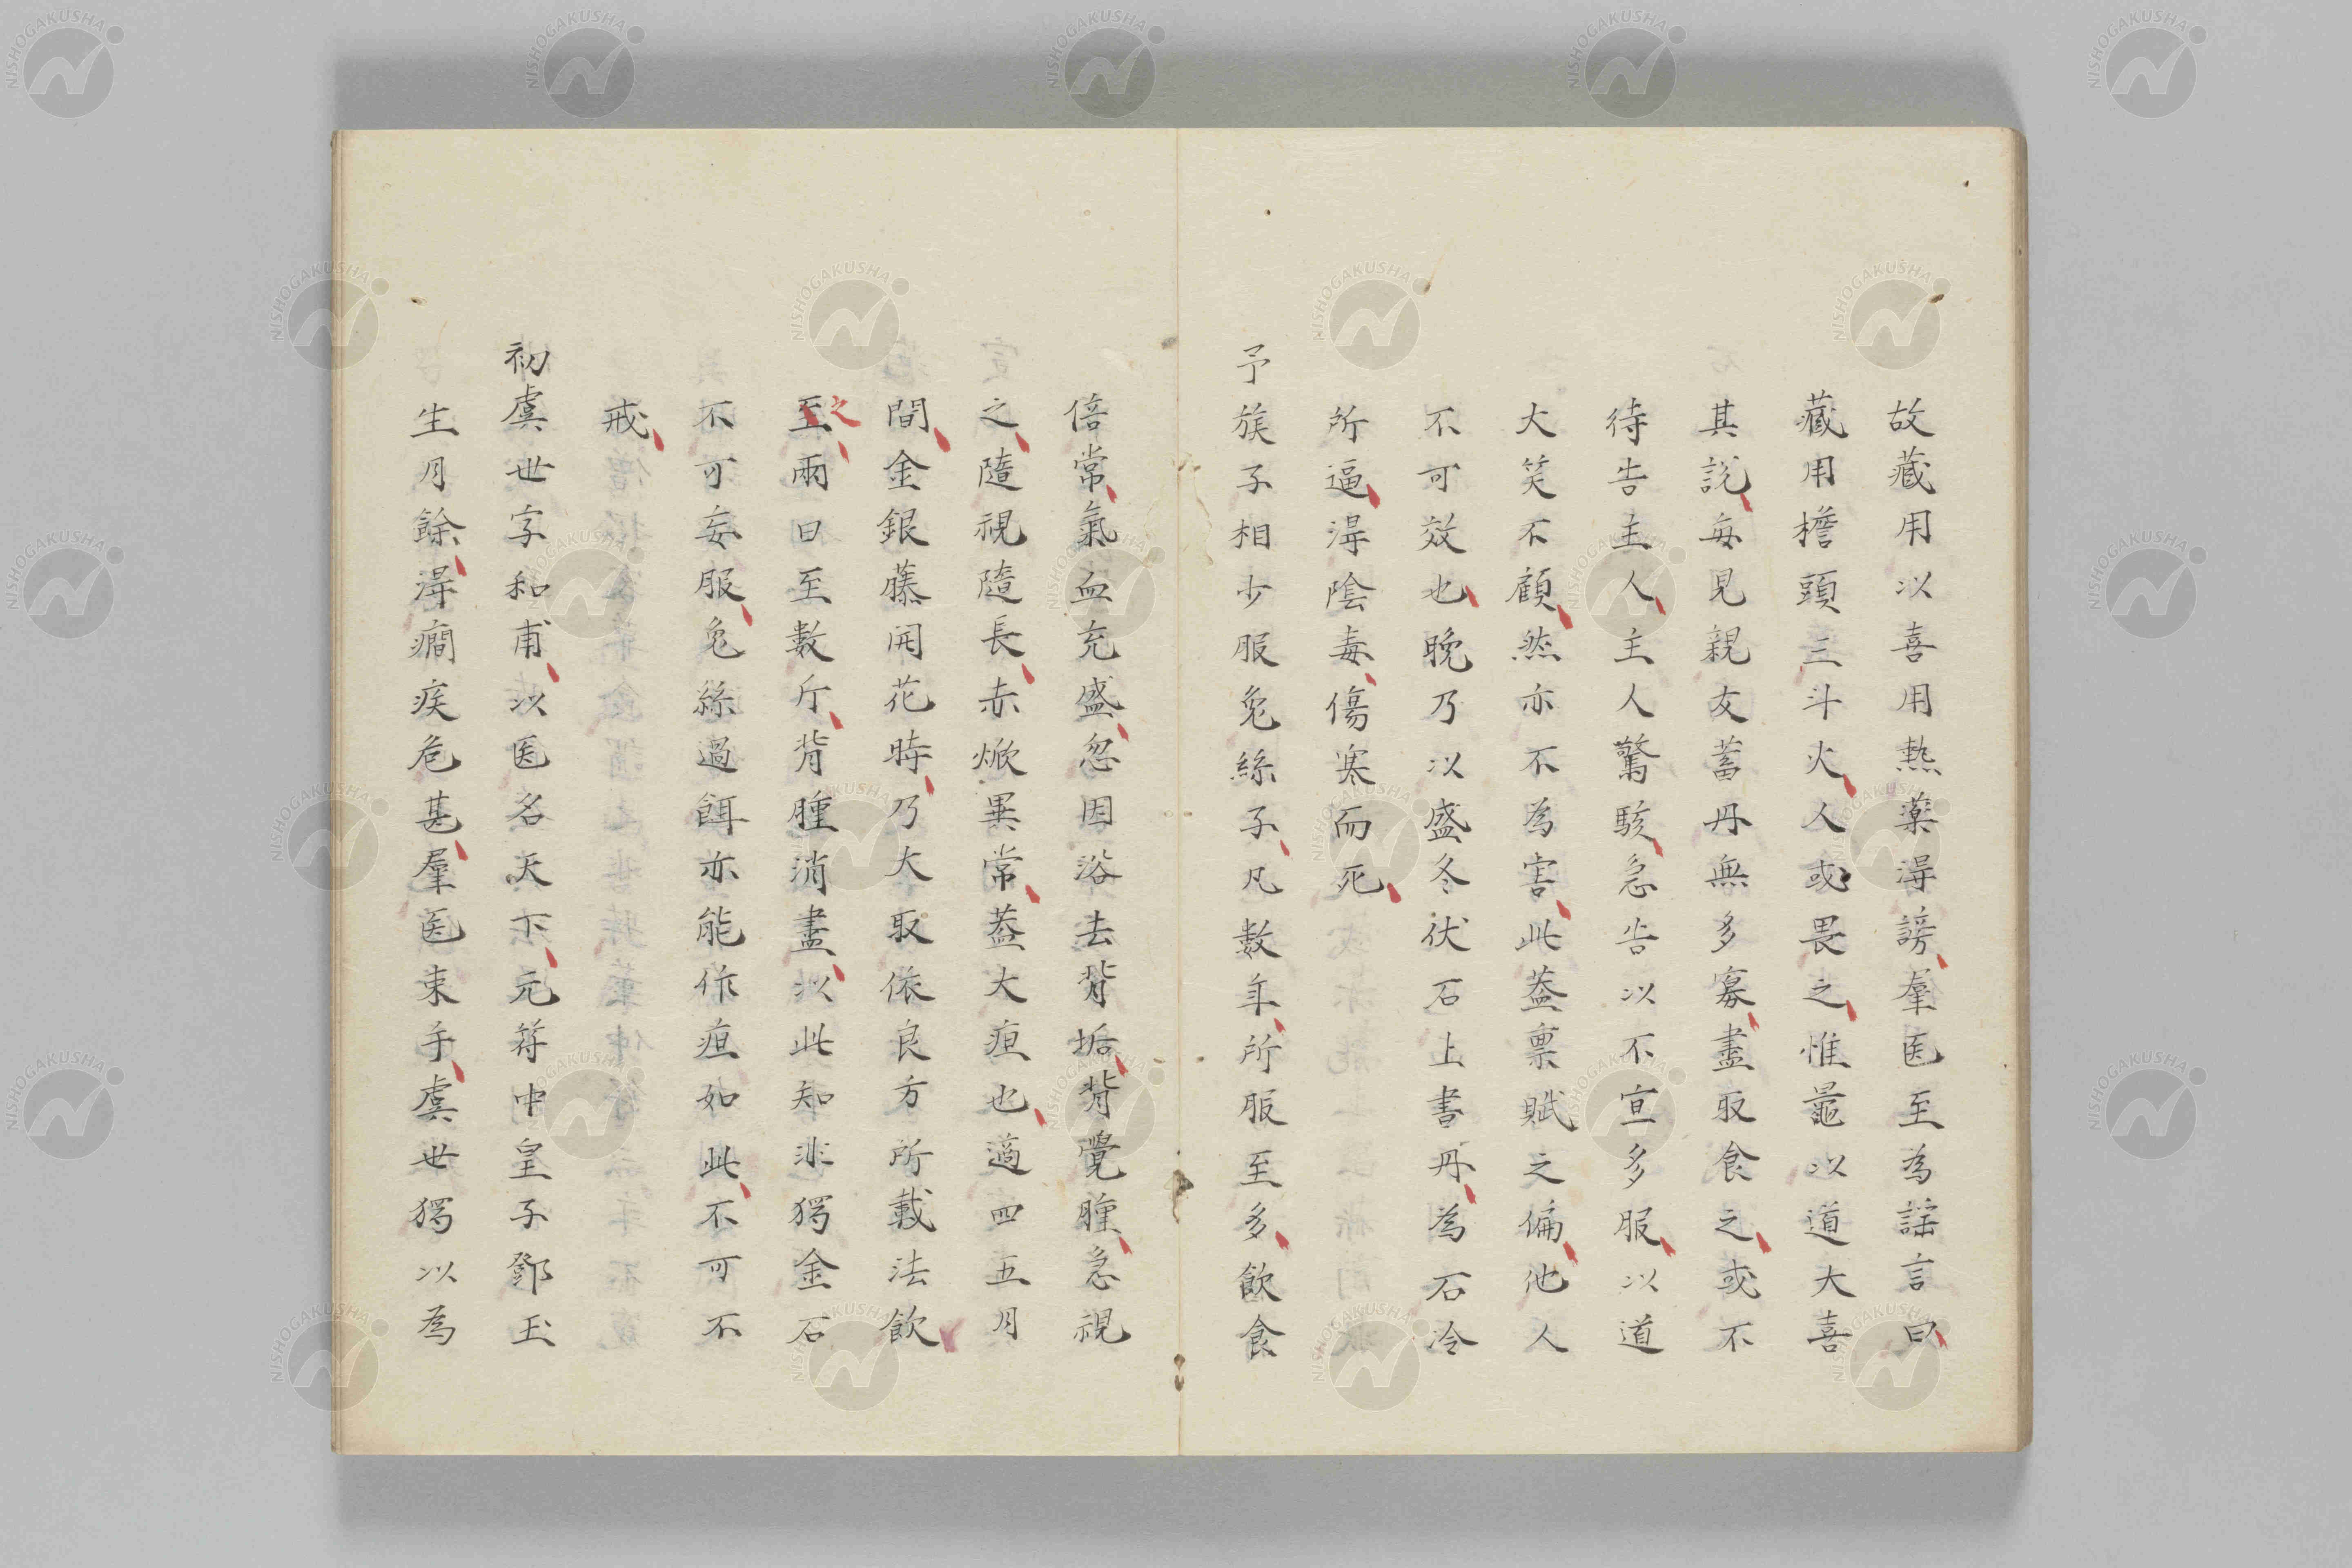 故藏用以喜用熱藥淂謗羣医至為謡言曰
藏用檐頭三斗火人或畏之惟鼂以道大喜
其說每見親友蓄丹無多寡盡取食之或不
待告主人主人驚駭急告以不宣多服以道
大笑不顧然亦不為害此葢禀賦之偏他人
不可效也晚乃以盛冬伏石上書丹為石冷
所逼淂陰毒傷寒而死
予族子相少服兔絲子凡數年所服至多飲食
倍常氣血充盛忽因浴去背垢背覺腫急視
之隨視隨長赤焮異常葢大疽也適四五月
間金銀藤開花時乃大取依良方所載法飲
之
至兩日至數斤背腫消盡以此知非獨金石
不可妄服兔絲過餌亦能作疽如此不可不
戒
初虞世字和甫以医名天下元符中皇子鄧王
生月餘淂癇疾危甚羣医束手虞世獨以為
NISHOGAKUSHA